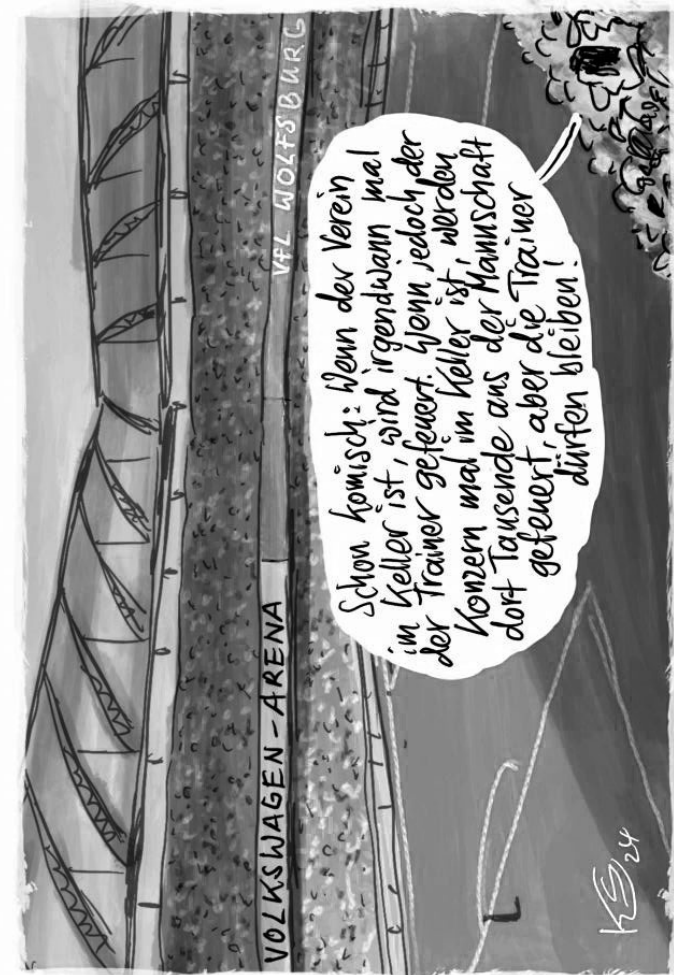 VOLKSWAGEN-ARENA
VFL WOLFSBURG
Schon komisch: Wenn der Verein
im Keller ist, wird irgendwann mal
der Trainer gefeuert. Wenn jedoch der
Konzern mal im Keller ist, werden
dort Tausende aus der Mannschaft
gefeuert, aber die Trainer
dürfen bleiben!
KS 24